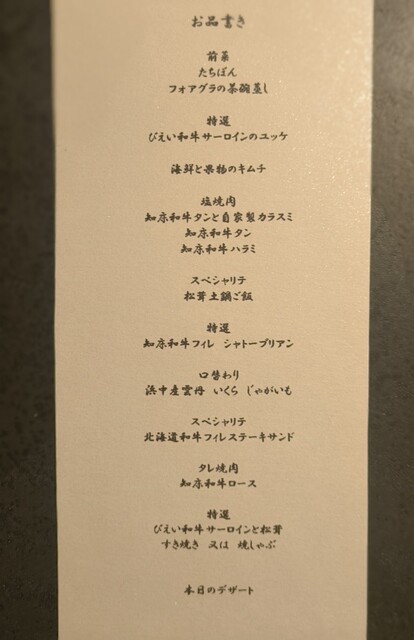 お品書き
前菜
たちぽん
フォアグラの茶碗蒸し
特選
びえい和牛サーロインのユッケ
海鮮と果物のキムチ
塩焼肉
知床和牛タンと自家製カラスミ
知床和牛タン
知床和牛ハラミ
スペシャリテ
松茸土鍋ご飯
特選
知床和牛フィレ シャトーブリアン
口替わり
浜中産雲丹 いくら じゃがいも
スペシャリテ
北海道和牛フィレステーキサンド
タレ焼肉
知床和牛ロース
特選
びえい和牛サーロインと松茸
すき焼き 又は 焼しゃぶ
本日のデザート